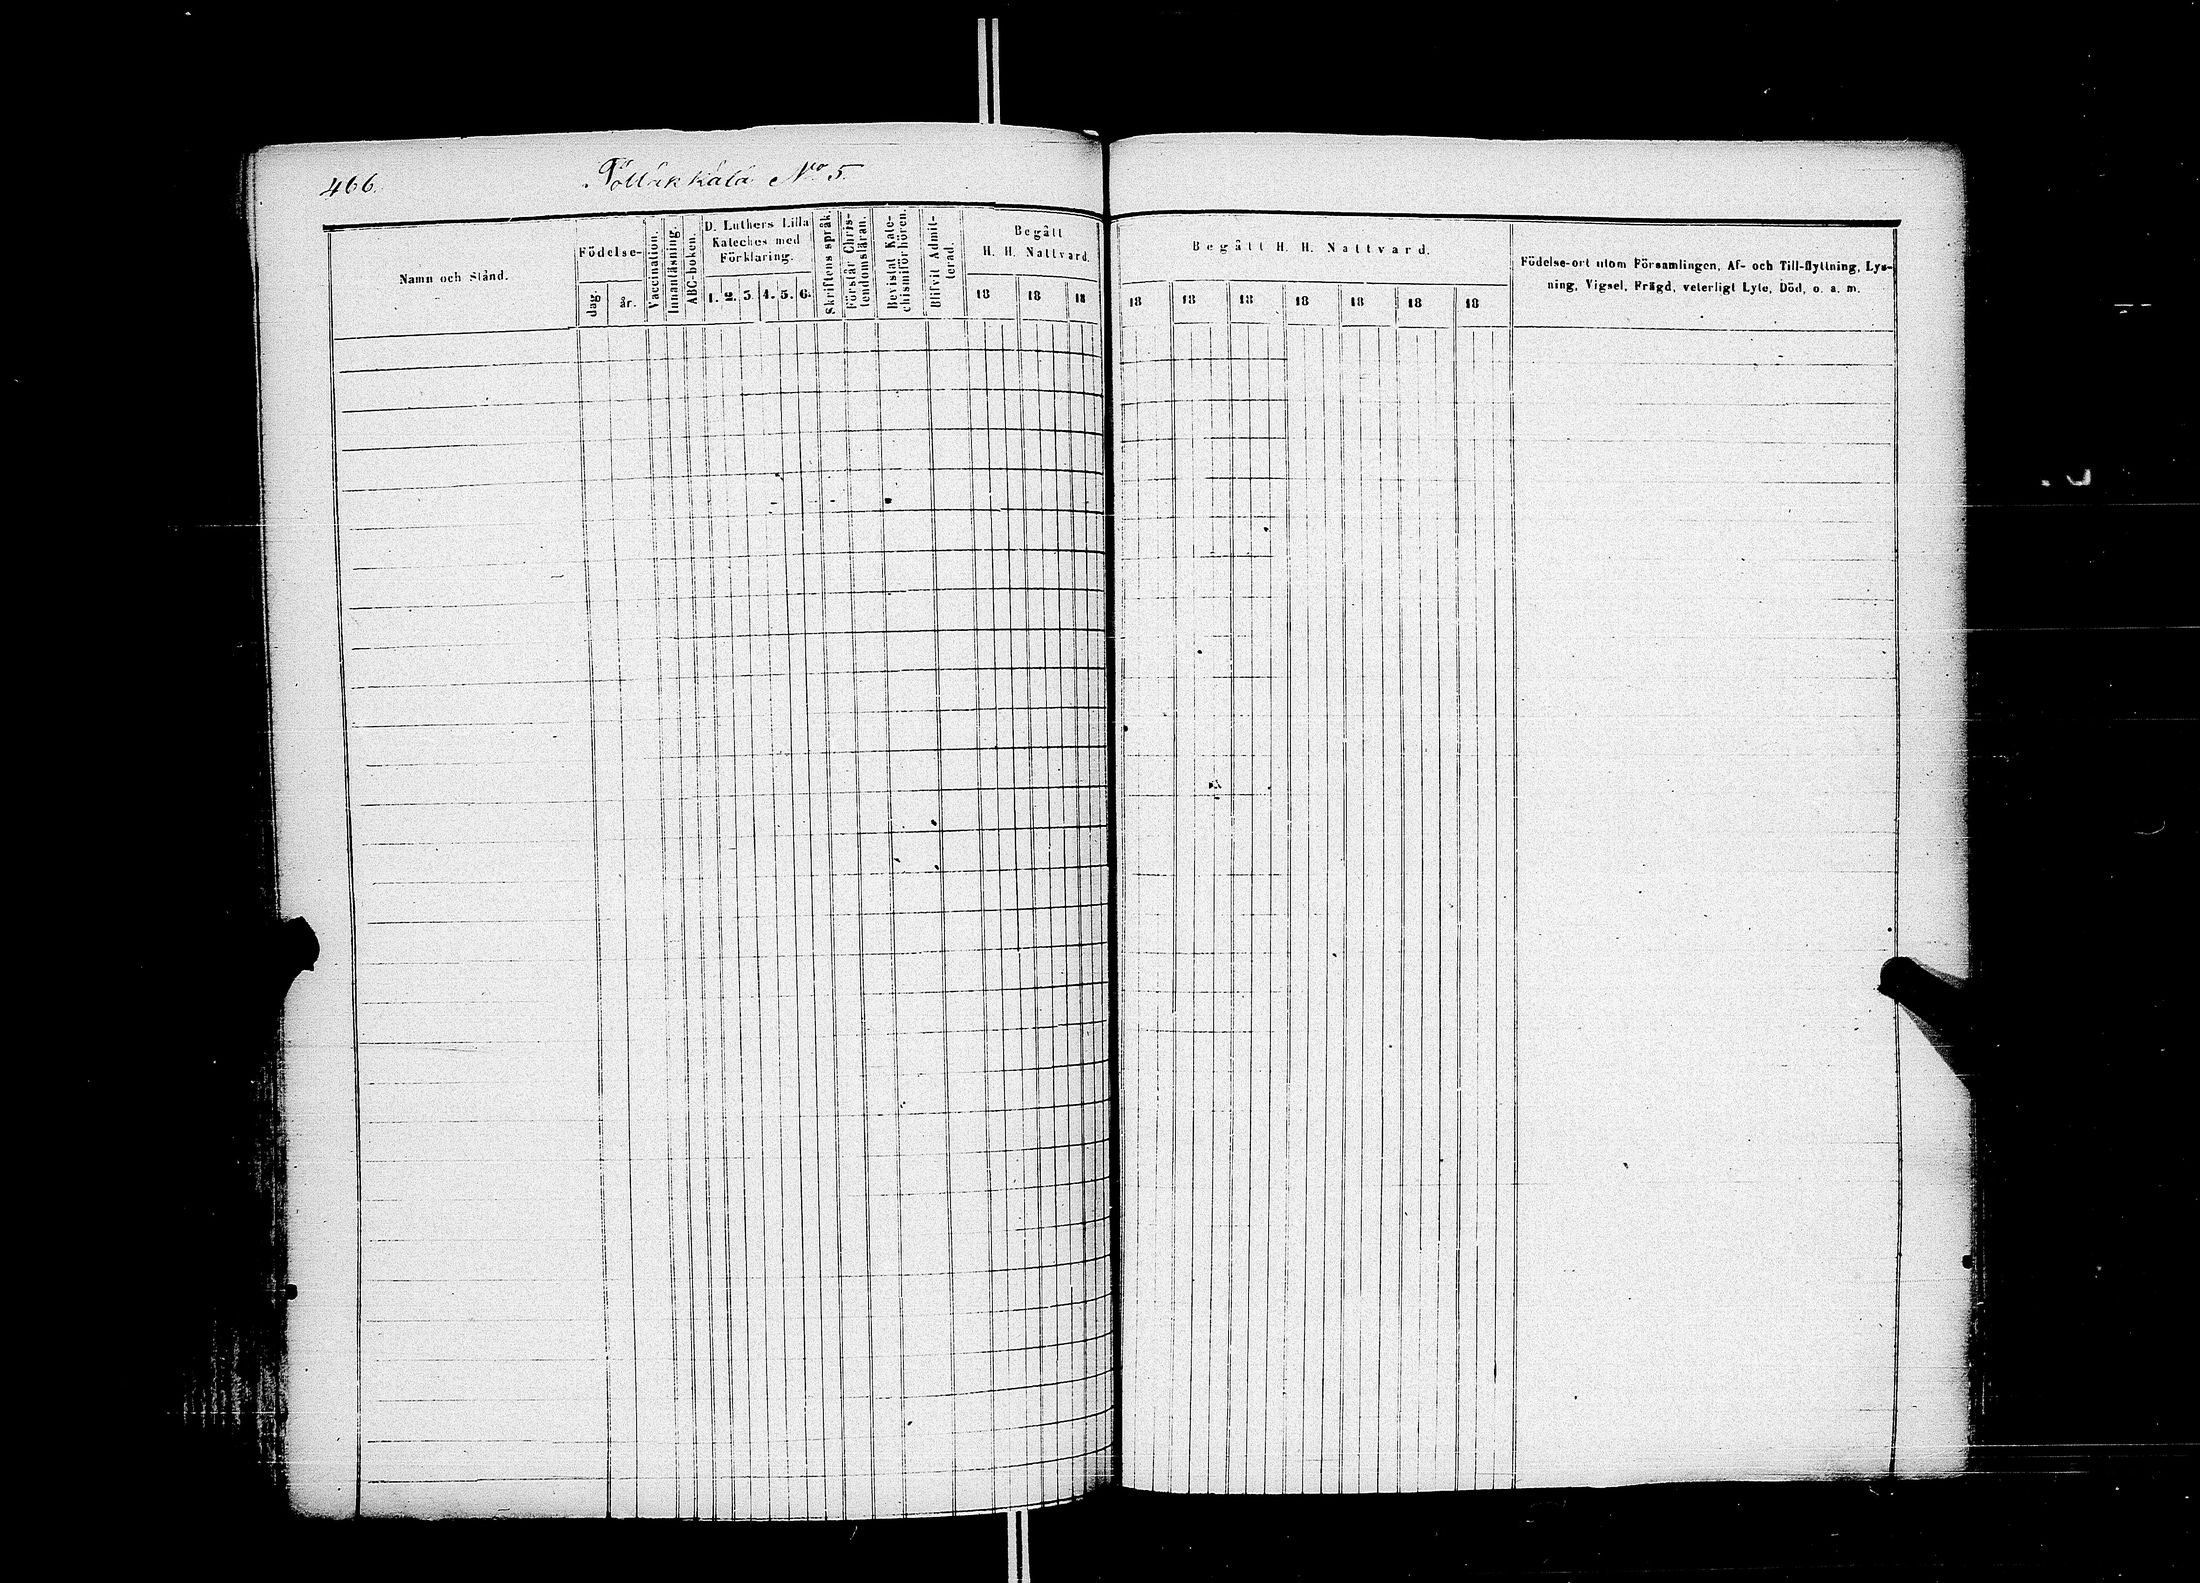 466.
Pöllakkala No 5.
Namn och Stånd.
Födelse-
dag.
år.
Vaccination.
Innanläsning.
ABC-boken.
D. Luthers Lilla
Kateches med
Förklaring.
1. 2. 3. 4. 5. 6.
Skriftens språk.
Förstår Chris-
tendomsläran.
Bevistat Kate-
chismiförhören.
Blifvit Admit-
terad.
Begått
H. H. Nattvard.
18 18 18
Begått H. H. Nattvard.
18 18 18 18 18 18 18
Födelse-ort utom Församlingen, Af- och Till-flyttning, Lys-
ning, Vigsel, Frägd, veterligt Lyte, Död, o. a. m.